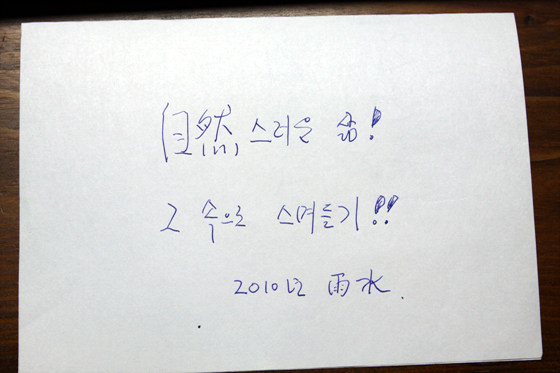 自然스러운 삶!
그 속으로 스며들기!!
2010년 雨水.